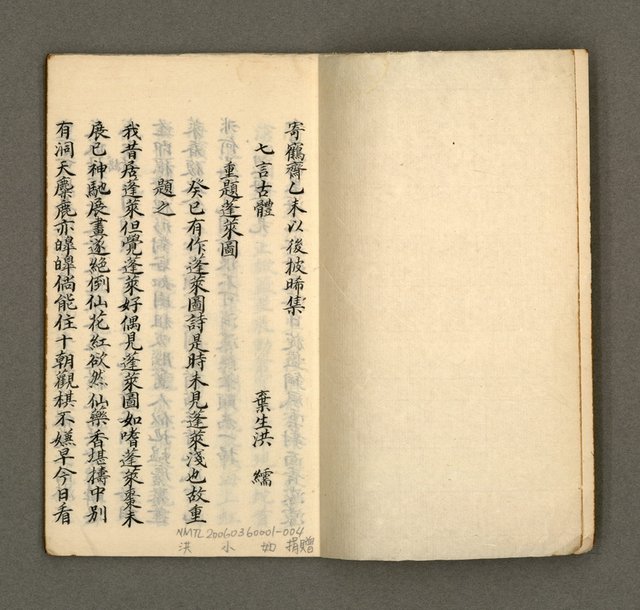 寄鶴齋乙未以後披晞集
七言古體
棄生洪 繻
重題蓬萊圖
癸巳有作蓬萊圖詩是時未見蓬萊淺也故重
題之
我昔居蓬萊但覺蓬萊好偶見蓬萊圖如嗜蓬萊棗未
展已神馳展畫遂絕倒仙花紅欲然仙藥香堪擣中別
有洞天麋鹿亦皞皞倘能住十朝觀棋不嫌早今日看
NMTL20060360001-004
洪 小 如 捐贈